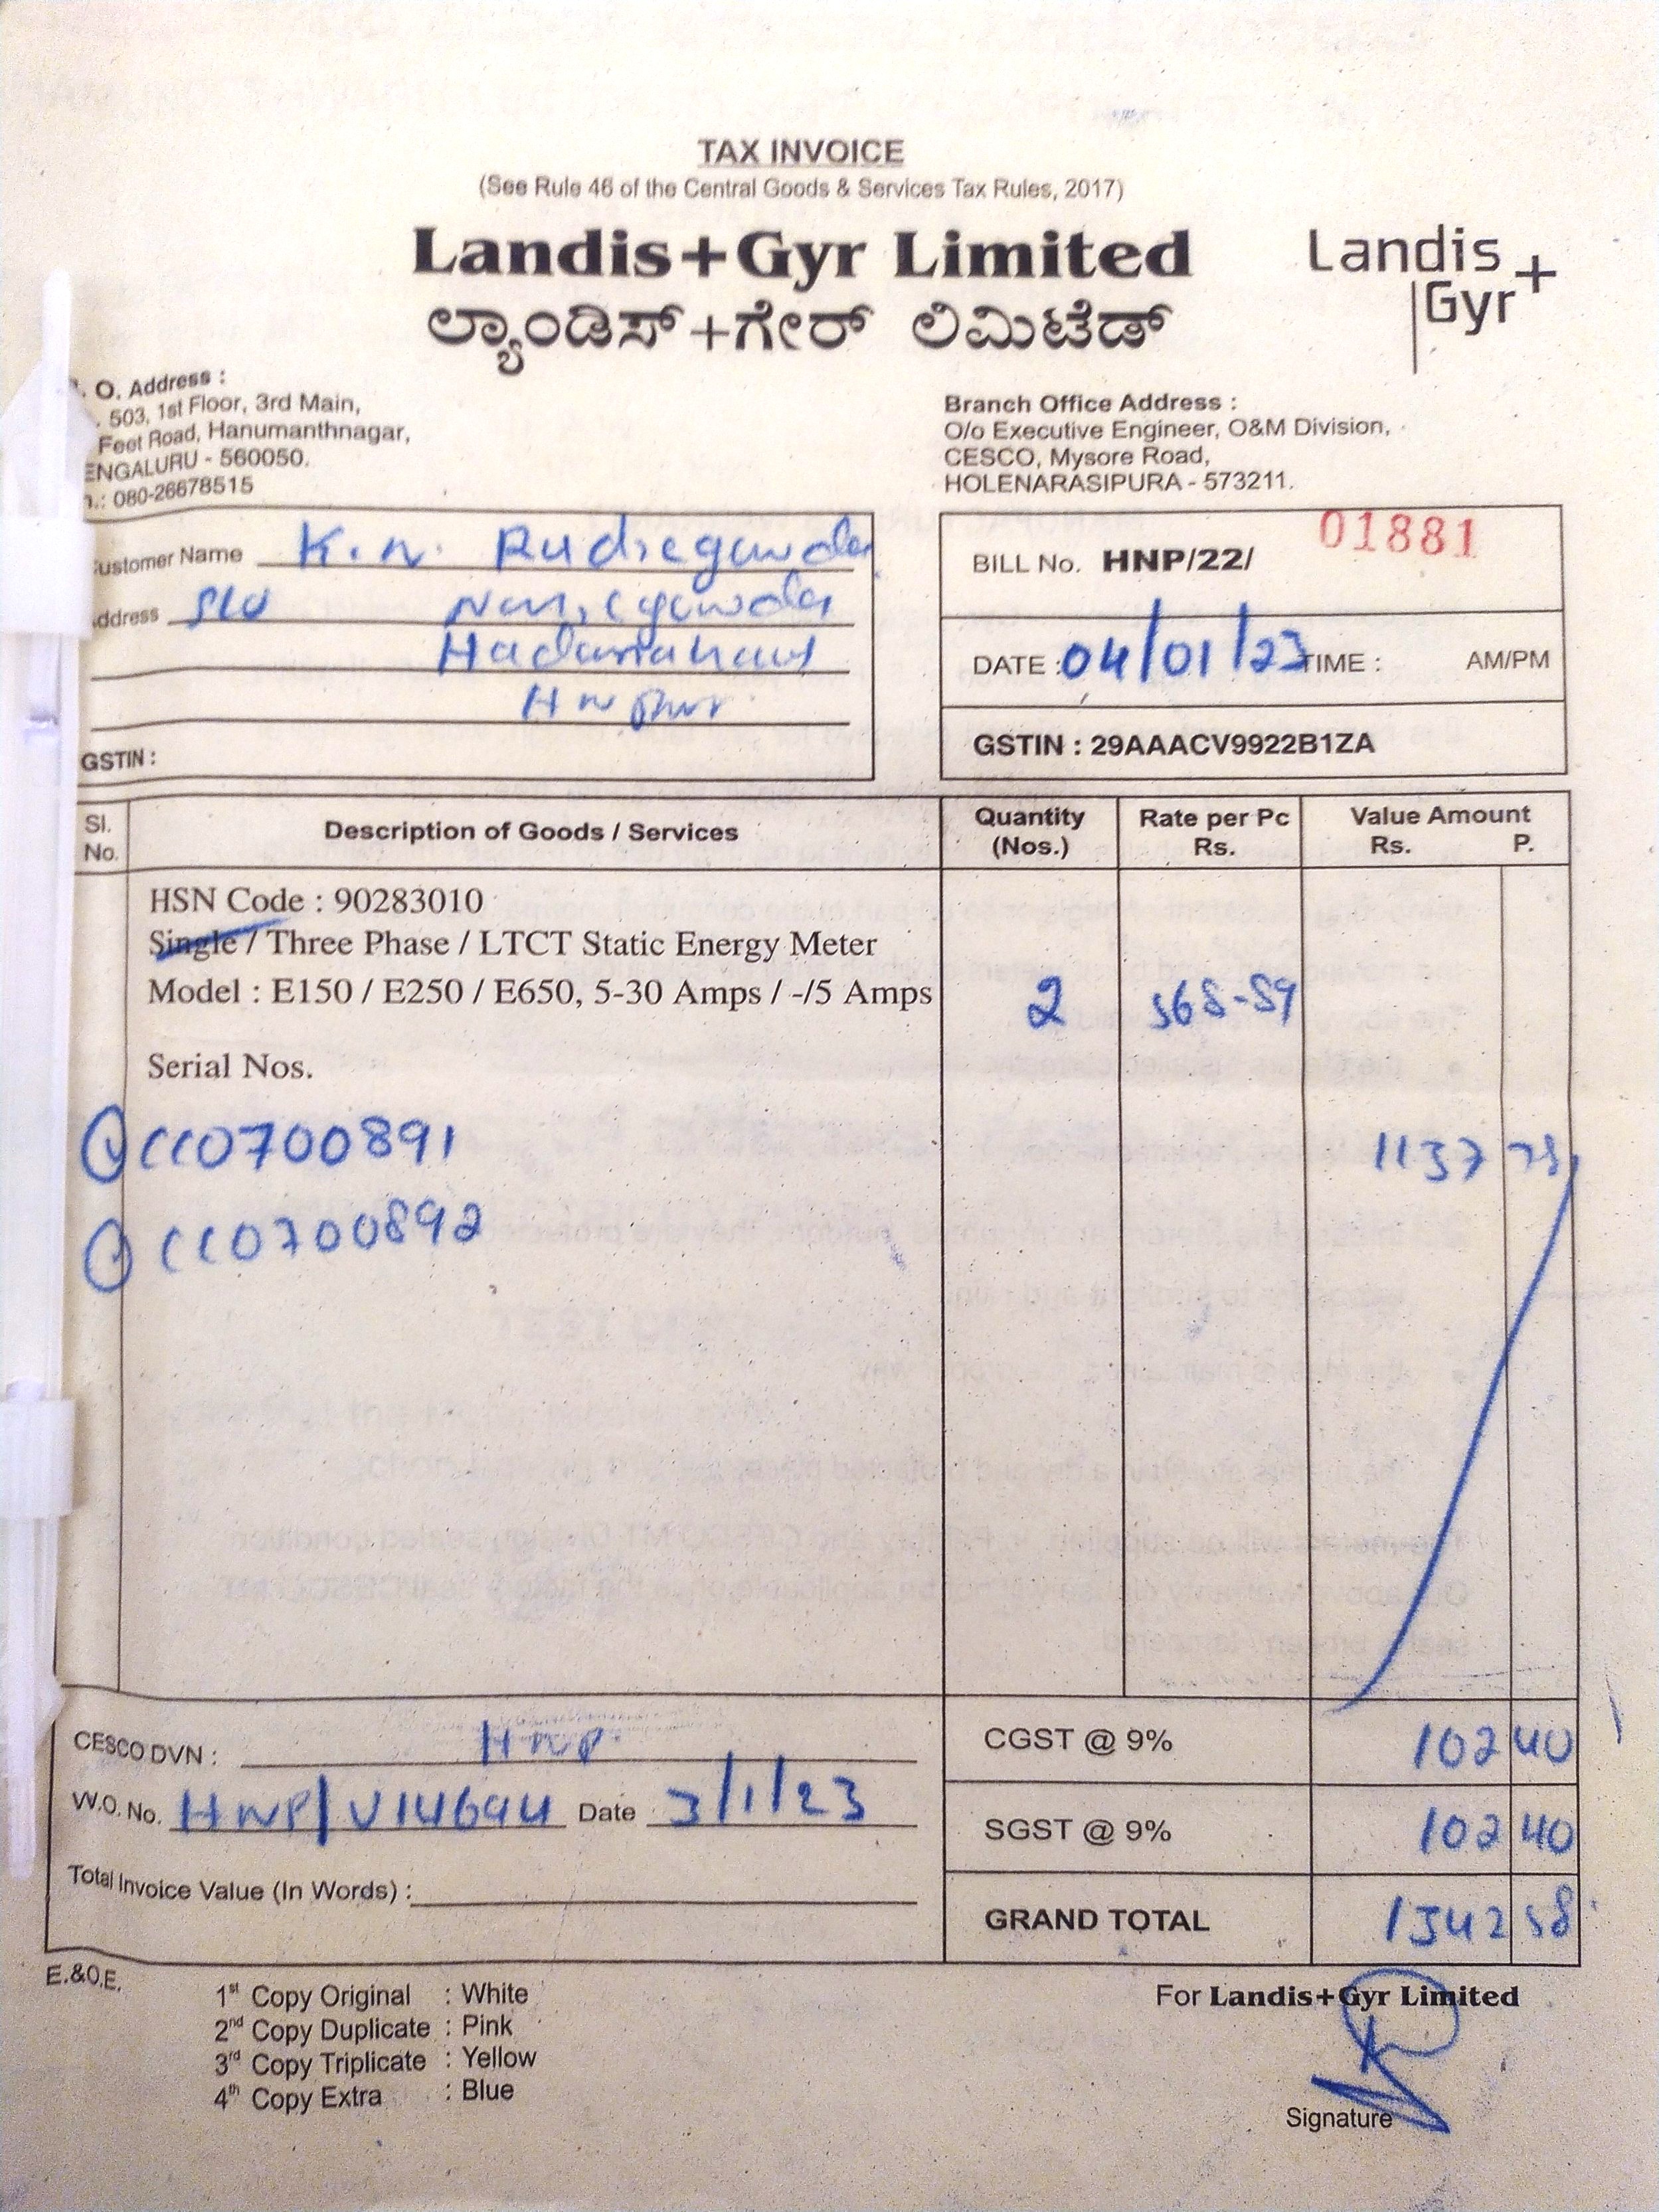 TAX INVOICE
(See Rule 46 of the Central Goods & Services Tax Rules, 2017)
Landis+Gyr Limited
ಲ್ಯಾಂಡಿಸ್+ಗೇರ್ ಲಿಮಿಟೆಡ್
Landis
Gyr+
. O. Address :
. 503, 1st Floor, 3rd Main,
Feet Road, Hanumanthnagar,
ENGALURU - 560050.
.: 080-26678515
Branch Office Address :
O/o Executive Engineer, O&M Division,
CESCO, Mysore Road,
HOLENARASIPURA - 573211.
ustomer Name K.N. Rudregowda
ddress S/O
GSTIN :
BILL No. HNP/22/ 01881
DATE : 04/01/23 TIME : AM/PM
GSTIN : 29AAACV9922B1ZA
Sl. No. Description of Goods / Services Quantity (Nos.) Rate per Pc Rs. Value Amount Rs. P.
HSN Code : 90283010
Single / Three Phase / LTCT Static Energy Meter
Model : E150 / E250 / E650, 5-30 Amps / -/5 Amps 2 568-89
Serial Nos.
CC0700891 1137 78
CC0700892
CESCO DVN : HNP
CGST @ 9% 102 40
W.O. No. HNP/V14694 Date 3/1/23
SGST @ 9% 102 40
Total Invoice Value (In Words) :
GRAND TOTAL 1342 58
E.&O.E.
1st Copy Original : White
2nd Copy Duplicate : Pink
3rd Copy Triplicate : Yellow
4th Copy Extra : Blue
For Landis+Gyr Limited
Signature